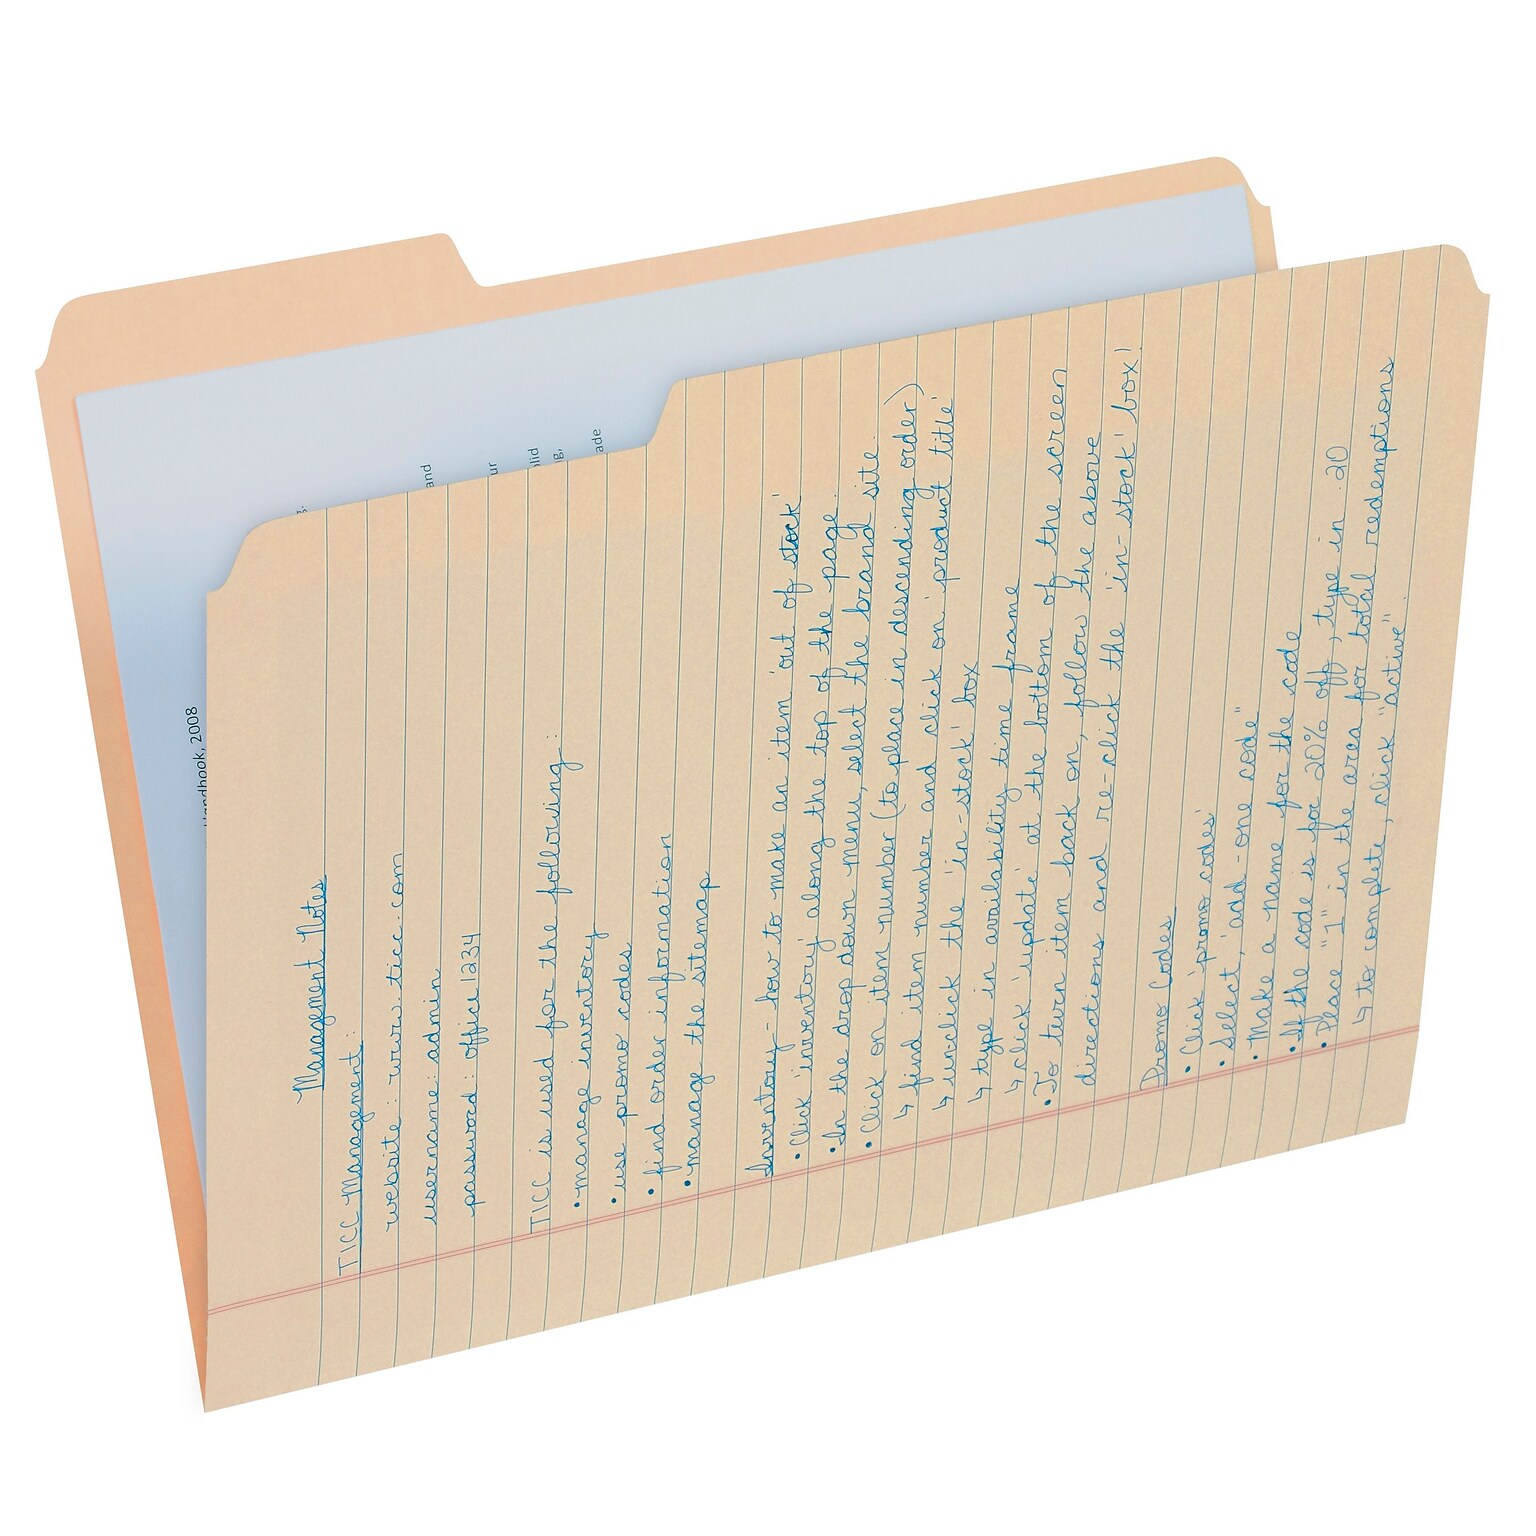 Management Notes
TICC Management:
website: www.ticc.com
username: admin
password: office1234
TICC is used for the following:
• manage inventory
• use promo codes
• find order information
• manage the sitemap
Inventory - how to make an item 'out of stock'
• Click 'inventory' along the top of the page.
• In the drop down menu, select the brand site.
• Click on item number (to place in descending order)
↳ find item number and click on 'product title'
↳ un-click the 'in-stock' box
↳ type in availability time frame
↳ click 'update' at the bottom of the screen
• To turn item back on, follow the above
directions and re-click the 'in-stock' box!
Promo Codes
• Click 'promo codes'
• Select 'add-one code"
• Make a name for the code
• If the code is for 20% off, type in .20
• Place "1" in the area for total redemptions
↳ to complete, click "active".
Handbook, 2008
and
ur
lid
g,
ade